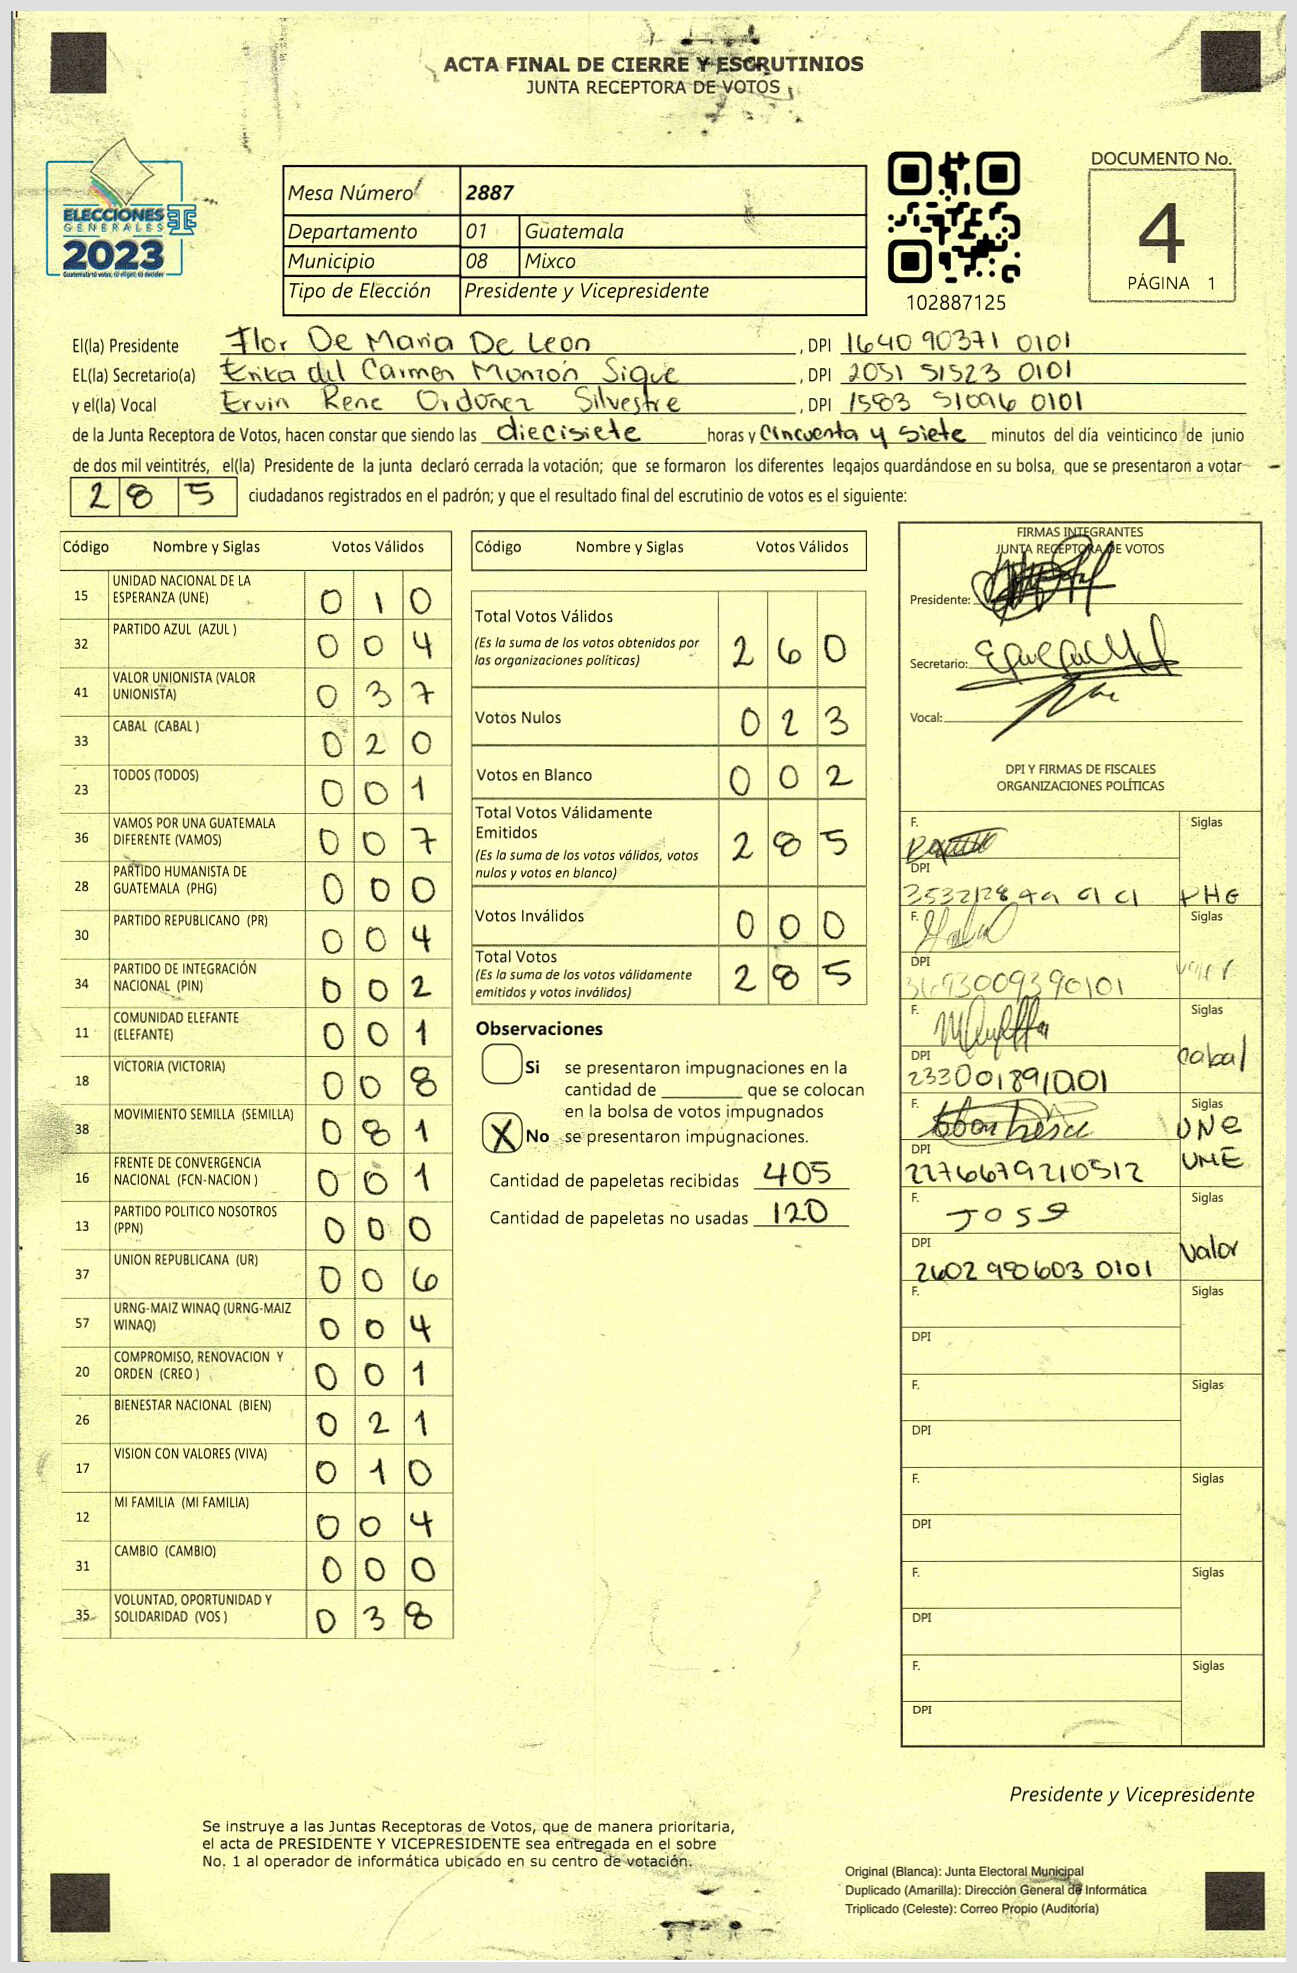 ACTA FINAL DE CIERRE Y ESCRUTINIOS
JUNTA RECEPTORA DE VOTOS
ELECCIONES
GENERALES
2023
Mesa Número 2887
Departamento 01 Guatemala
Municipio 08 Mixco
Tipo de Elección Presidente y Vicepresidente
102887125
DOCUMENTO No.
4
PÁGINA 1
El(la) Presidente Flor De Maria De Leon , DPI 1640 90371 0101
EL(la) Secretario(a) Erika del Carmen Monzón Sique , DPI 2051 51523 0101
y el(la) Vocal Ervin Rene Ordoñez Silvestre , DPI 1583 51096 0101
de la Junta Receptora de Votos, hacen constar que siendo las diecisiete horas y cincuenta y siete minutos del día veinticinco de junio
de dos mil veintitrés, el(la) Presidente de la junta declaró cerrada la votación; que se formaron los diferentes legajos quardándose en su bolsa, que se presentaron a votar
285 ciudadanos registrados en el padrón; y que el resultado final del escrutinio de votos es el siguiente:
Código Nombre y Siglas Votos Válidos
15 UNIDAD NACIONAL DE LA ESPERANZA (UNE) 010
32 PARTIDO AZUL (AZUL ) 004
41 VALOR UNIONISTA (VALOR UNIONISTA) 037
33 CABAL (CABAL ) 020
23 TODOS (TODOS) 001
36 VAMOS POR UNA GUATEMALA DIFERENTE (VAMOS) 007
28 PARTIDO HUMANISTA DE GUATEMALA (PHG) 000
30 PARTIDO REPUBLICANO (PR) 004
34 PARTIDO DE INTEGRACIÓN NACIONAL (PIN) 002
11 COMUNIDAD ELEFANTE (ELEFANTE) 001
18 VICTORIA (VICTORIA) 008
38 MOVIMIENTO SEMILLA (SEMILLA) 081
16 FRENTE DE CONVERGENCIA NACIONAL (FCN-NACION ) 001
13 PARTIDO POLITICO NOSOTROS (PPN) 000
37 UNION REPUBLICANA (UR) 006
57 URNG-MAIZ WINAQ (URNG-MAIZ WINAQ) 004
20 COMPROMISO, RENOVACION Y ORDEN (CREO ) 001
26 BIENESTAR NACIONAL (BIEN) 021
17 VISION CON VALORES (VIVA) 010
12 MI FAMILIA (MI FAMILIA) 004
31 CAMBIO (CAMBIO) 000
35 VOLUNTAD, OPORTUNIDAD Y SOLIDARIDAD (VOS ) 038
Código Nombre y Siglas Votos Válidos
Total Votos Válidos 260
(Es la suma de los votos obtenidos por
las organizaciones políticas)
Votos Nulos 023
Votos en Blanco 002
Total Votos Válidamente
Emitidos 285
(Es la suma de los votos válidos, votos
nulos y votos en blanco)
Votos Inválidos 000
Total Votos 285
(Es la suma de los votos válidamente
emitidos y votos inválidos)
Observaciones
Si se presentaron impugnaciones en la
cantidad de que se colocan
en la bolsa de votos impugnados
X No se presentaron impugnaciones.
Cantidad de papeletas recibidas 405
Cantidad de papeletas no usadas 120
FIRMAS INTEGRANTES
JUNTA RECEPTORA DE VOTOS
Presidente:
Secretario:
Vocal:
DPI Y FIRMAS DE FISCALES
ORGANIZACIONES POLÍTICAS
F. Siglas
DPI
PHG
F. Siglas
DPI
3693009390101
F. Siglas
DPI cabal
2330018910101
F. Siglas
UNE
DPI UNE
2276679210512
F. Siglas
JOSE
DPI Valor
2602 980603 0101
F. Siglas
DPI
F. Siglas
DPI
F. Siglas
DPI
F. Siglas
DPI
F. Siglas
DPI
Presidente y Vicepresidente
Se instruye a las Juntas Receptoras de Votos, que de manera prioritaria,
el acta de PRESIDENTE Y VICEPRESIDENTE sea entregada en el sobre
No. 1 al operador de informática ubicado en su centro de votación.
Original (Blanca): Junta Electoral Municipal
Duplicado (Amarilla): Dirección General de Informática
Triplicado (Celeste): Correo Propio (Auditoría)